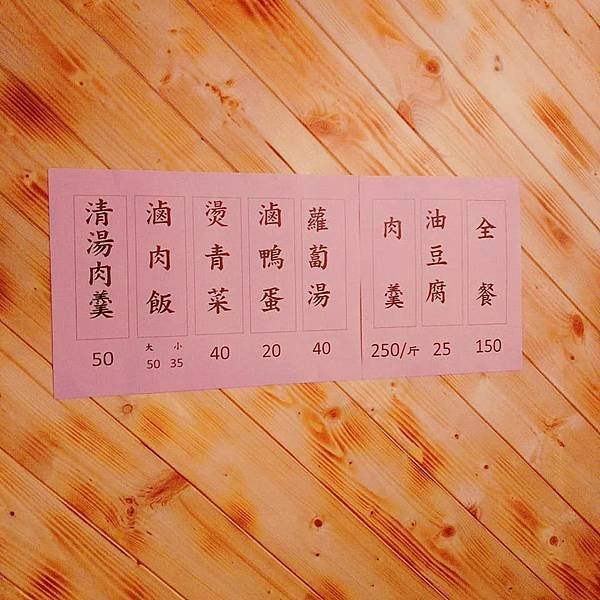 全餐
150
油豆腐
25
肉羹
250/斤
蘿蔔湯
40
滷鴨蛋
20
燙青菜
40
滷肉飯
大 小
50 35
清湯肉羹
50